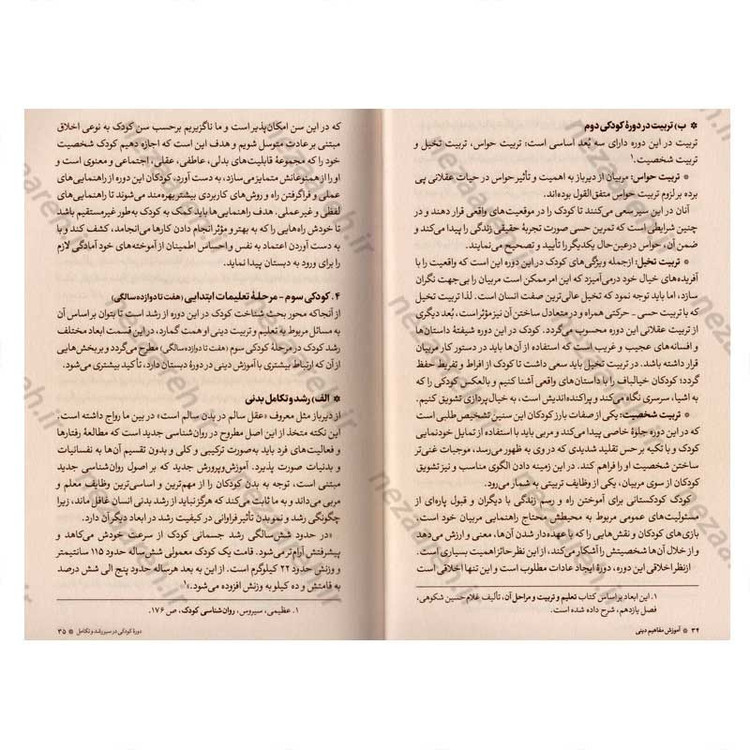 ✵ ب) تربیت در دورهٔ کودکی دوم
تربیت در این دوره دارای سه بُعد اساسی است: تربیت حواس، تربیت تخیل و
تربیت شخصیت.۱
● تربیت حواس: مربیان از دیرباز به اهمیت و تأثیر حواس در حیات عقلانی پی
برده بر لزوم تربیت حواس متفق‌القول بوده‌اند.
آنان در این سیر سعی می‌کنند تا کودک را در موقعیت‌های واقعی قرار دهند و در
چنین شرایطی است که تمرین حسی صورت تجربهٔ حقیقی زندگی را پیدا می‌کند و
ضمن آن، حواس درعین‌حال یکدیگر را تأیید و تصحیح می‌نمایند.
● تربیت تخیل: ازجمله ویژگی‌های کودک در این دوره این است که واقعیت را با
آفریده‌های خیال خود درمی‌آمیزد که این امر ممکن است مربیان را بی‌جهت نگران
سازد، اما باید توجه نمود که تخیل عالی‌ترین صفت انسان است. لذا تربیت تخیل
که با تربیت حسی - حرکتی همراه و در متعادل ساختن آن نیز مؤثر است، بُعد دیگری
از تربیت عقلانی این دوره محسوب می‌گردد. کودک در این دوره شیفتهٔ داستان‌ها
و افسانه‌های عجیب و غریب است که استفاده از آن‌ها باید در دستور کار مربیان
قرار داشته باشد. در تربیت تخیل باید سعی داشت تا کودک از افراط و تفریط حفظ
گردد؛ کودکان خیالباف را با داستان‌های واقعی آشنا کنیم و بالعکس کودکی را که
به اشیاء سرسری نگاه می‌کند و پراکنده‌اندیش است، به خیال‌پردازی تشویق کنیم.
● تربیت شخصیت: یکی از صفات بارز کودکان این سنین تشخیص‌طلبی است
که در این دوره جلوهٔ خاصی پیدا می‌کند و مربی باید با استفاده از تمایل خودنمایی
کودک و با تکیه بر حس تقلید شدیدی که در وی به ظهور می‌رسد، موجبات غنی‌تر
ساختن شخصیت او را فراهم کند. در این زمینه دادن الگوی مناسب و نیز تشویق
کودکان از سوی مربیان، یکی از وظایف تربیتی به شمار می‌رود.
کودک کودکستانی برای آموختن راه و رسم زندگی با دیگران و قبول پاره‌ای از
مسئولیت‌های عمومی مربوط به محیطش محتاج راهنمایی مربیان خود است.
بازی‌های کودکان و نقش‌هایی را که با عهده‌دار شدن آن‌ها، معنی و ارزش می‌دهد
و از خلال آن‌ها شخصیتش را آشکار می‌کند، از این نظر حائز اهمیت بسیاری است.
ازنظر اخلاقی این دوره، دورهٔ ایجاد عادات مطلوب است و این تنها اخلاقی است
۱. این ابعاد براساس کتاب تعلیم و تربیت و مراحل آن، تألیف غلامحسین شکوهی،
فصل یازدهم، شرح داده شده است.
۳۴ ✵ آموزش مفاهیم دینی
که در این سن امکان‌پذیر است و ما ناگزیریم برحسب سن کودک به نوعی اخلاق
مبتنی بر عادت متوسل شویم و هدف این است که اجازه دهیم کودک شخصیت
خود را که مجموعهٔ قابلیت‌های بدلی، عاطفی، عقلی، اجتماعی و معنوی است و
او را از همنوعانش متمایز می‌سازد، به دست آورد. کودکان این دوره از راهنمایی‌های
عملی و فراگرفتن راه و روش‌های کاربردی بیشتر بهره‌مند می‌شوند تا راهنمایی‌های
لفظی و غیرعملی. هدف راهنمایی‌ها باید کمک به کودک به‌طور غیرمستقیم باشد
تا خودش راه‌هایی را که به بهتر و مؤثر انجام دادن کارها می‌انجامد، کشف کند و با
به دست آوردن اعتماد به نفس و احساس اطمینان از آموخته‌های خود آمادگی لازم
را برای ورود به دبستان پیدا نماید.
۴. کودکی سوم - مرحلهٔ تعلیمات ابتدایی (هفت تا دوازده‌سالگی)
از آنجاکه محور بحث شناخت کودک در این دوره از رشد است تا بتوان براساس آن
به مسائل مربوط به تعلیم و تربیت دینی او همت گمارد، در این قسمت ابعاد مختلف
رشد کودک در مرحلهٔ کودکی سوم (هفت تا دوازده‌سالگی) مطرح می‌گردد و بر بخش‌هایی
از آن که ارتباط بیشتری با آموزش دینی در دورهٔ دبستان دارد، تأکید بیشتری می‌شود.
✵ الف) رشد و تکامل بدنی
از دیرباز مثل معروف «عقل سالم در بدن سالم است» در بین ما رواج داشته است.
این نکته متخذ از این اصل مطروح در روان‌شناسی جدید است که مطالعهٔ رفتارها
و فعالیت‌های فرد باید به‌صورت ترکیبی و کلی و بدون تقسیم آن‌ها به نفسانیات
و بدنیات صورت پذیرد. آموزش‌وپرورش جدید که بر اصول روان‌شناسی جدید
مبتنی است، توجه به بدن کودکان را از مهم‌ترین و اساسی‌ترین وظایف معلم و
مربی می‌داند و به ما ثابت می‌کند که هرگز نباید از رشد بدنی انسان غافل ماند، زیرا
چگونگی رشد و نمو بدن تأثیر فراوانی در کیفیت رشد در ابعاد دیگر آن دارد.
«در حدود شش‌سالگی رشد جسمانی کودک از سرعت خودش می‌کاهد و
پیشرفتش آرام‌تر می‌شود. قامت یک کودک معمولی شش‌ساله حدود ۱۱۵ سانتیمتر
و وزنش حدود ۲۲ کیلوگرم است. از این به بعد هرساله حدود پنج الی شش درصد
به قامتش و ده کیلو به وزنش افزوده می‌شود.»۱
۱. عظیمی، سیروس، روان‌شناسی کودک، ص ۱۷۶.
دورهٔ کودکی در سیر رشد و تکامل ✵ ۳۵
nezaareh.ir